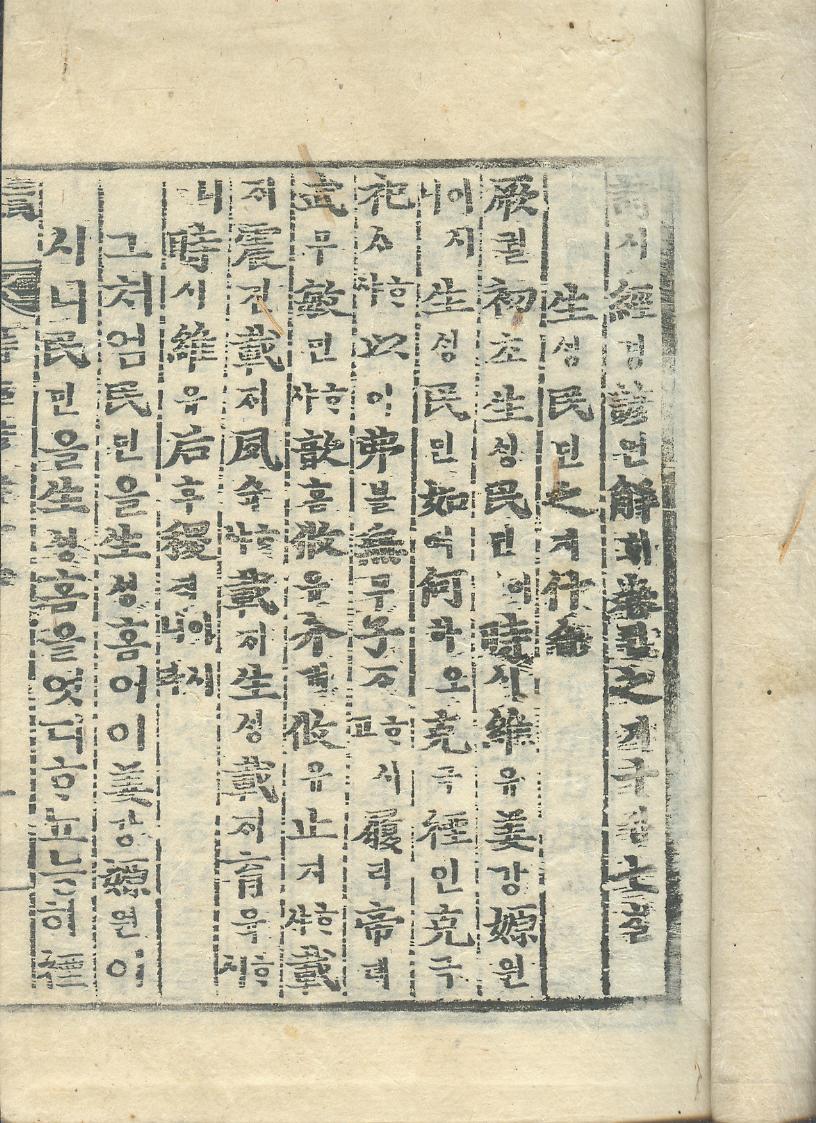 詩시經경諺언解ᄒᆡ卷권之지
生ᄉᆡᆼ民민之지什습
厥궐初초生ᄉᆡᆼ民민이時시維유姜강嫄원
이시니生ᄉᆡᆼ民민如여何하오克극禋인克극
祀ᄉᆞᄒᆞ샤以이弗블無무子ᄌᆞᄒᆞ시고履리帝뎨
武무敏민ᄒᆞ샤歆흠攸유介개攸유止지ᄒᆞ샤載
ᄌᆡ震진載ᄌᆡ夙슉ᄒᆞ샤載ᄌᆡ生ᄉᆡᆼ載ᄌᆡ育육ᄒᆞ시
니時시維유后후稷직이시니라
그처엄民민을生ᄉᆡᆼ홈어이姜강嫄원이
시니民민을生ᄉᆡᆼ홈을엇디ᄒᆞ뇨능히禋